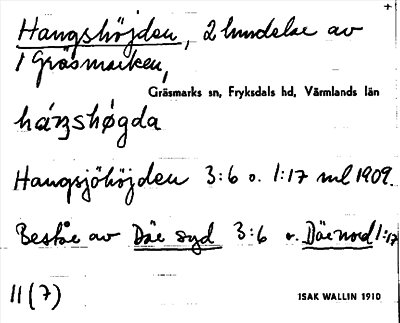 Hangshöjden, 2 hundelse av
1 Gräsmarken,
Gräsmarks sn, Fryksdals hd, Värmlands län
háŋshǿgda
Hangsjöhöjden 3:6 o. 1:17 ml 1909.
Bestå av Däe syd 3:6 o. Däe nord 1:17
11 (7)
ISAK WALLIN 1910